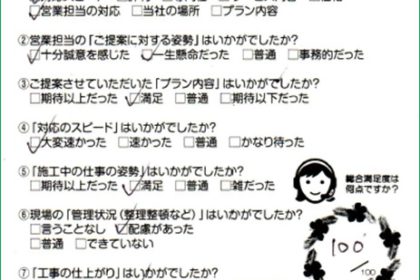 ☑営業担当の対応 □当社の場所 □プラン内容
②営業担当の「ご提案に対する姿勢」はいかがでしたか?
☑十分誠意を感じた ☑一生懸命だった □普通 □事務的だった
③ご提案させていただいた「プラン内容」はいかがでしたか?
□期待以上だった ☑満足 □普通 □期待以下だった
④「対応のスピード」はいかがでしたか?
☑大変速かった □速かった □普通 □かなり待った
⑤「施工中の仕事の姿勢」はいかがでしたか?
□期待以上だった ☑満足 □普通 □雑だった
総合満足度は
何点ですか?
⑥現場の「管理状況(整理整頓など)」はいかがでしたか?
□言うことなし ☑配慮があった
□普通 □できていない
100
/100
⑦「工事の仕上がり」はいかがでしたか?